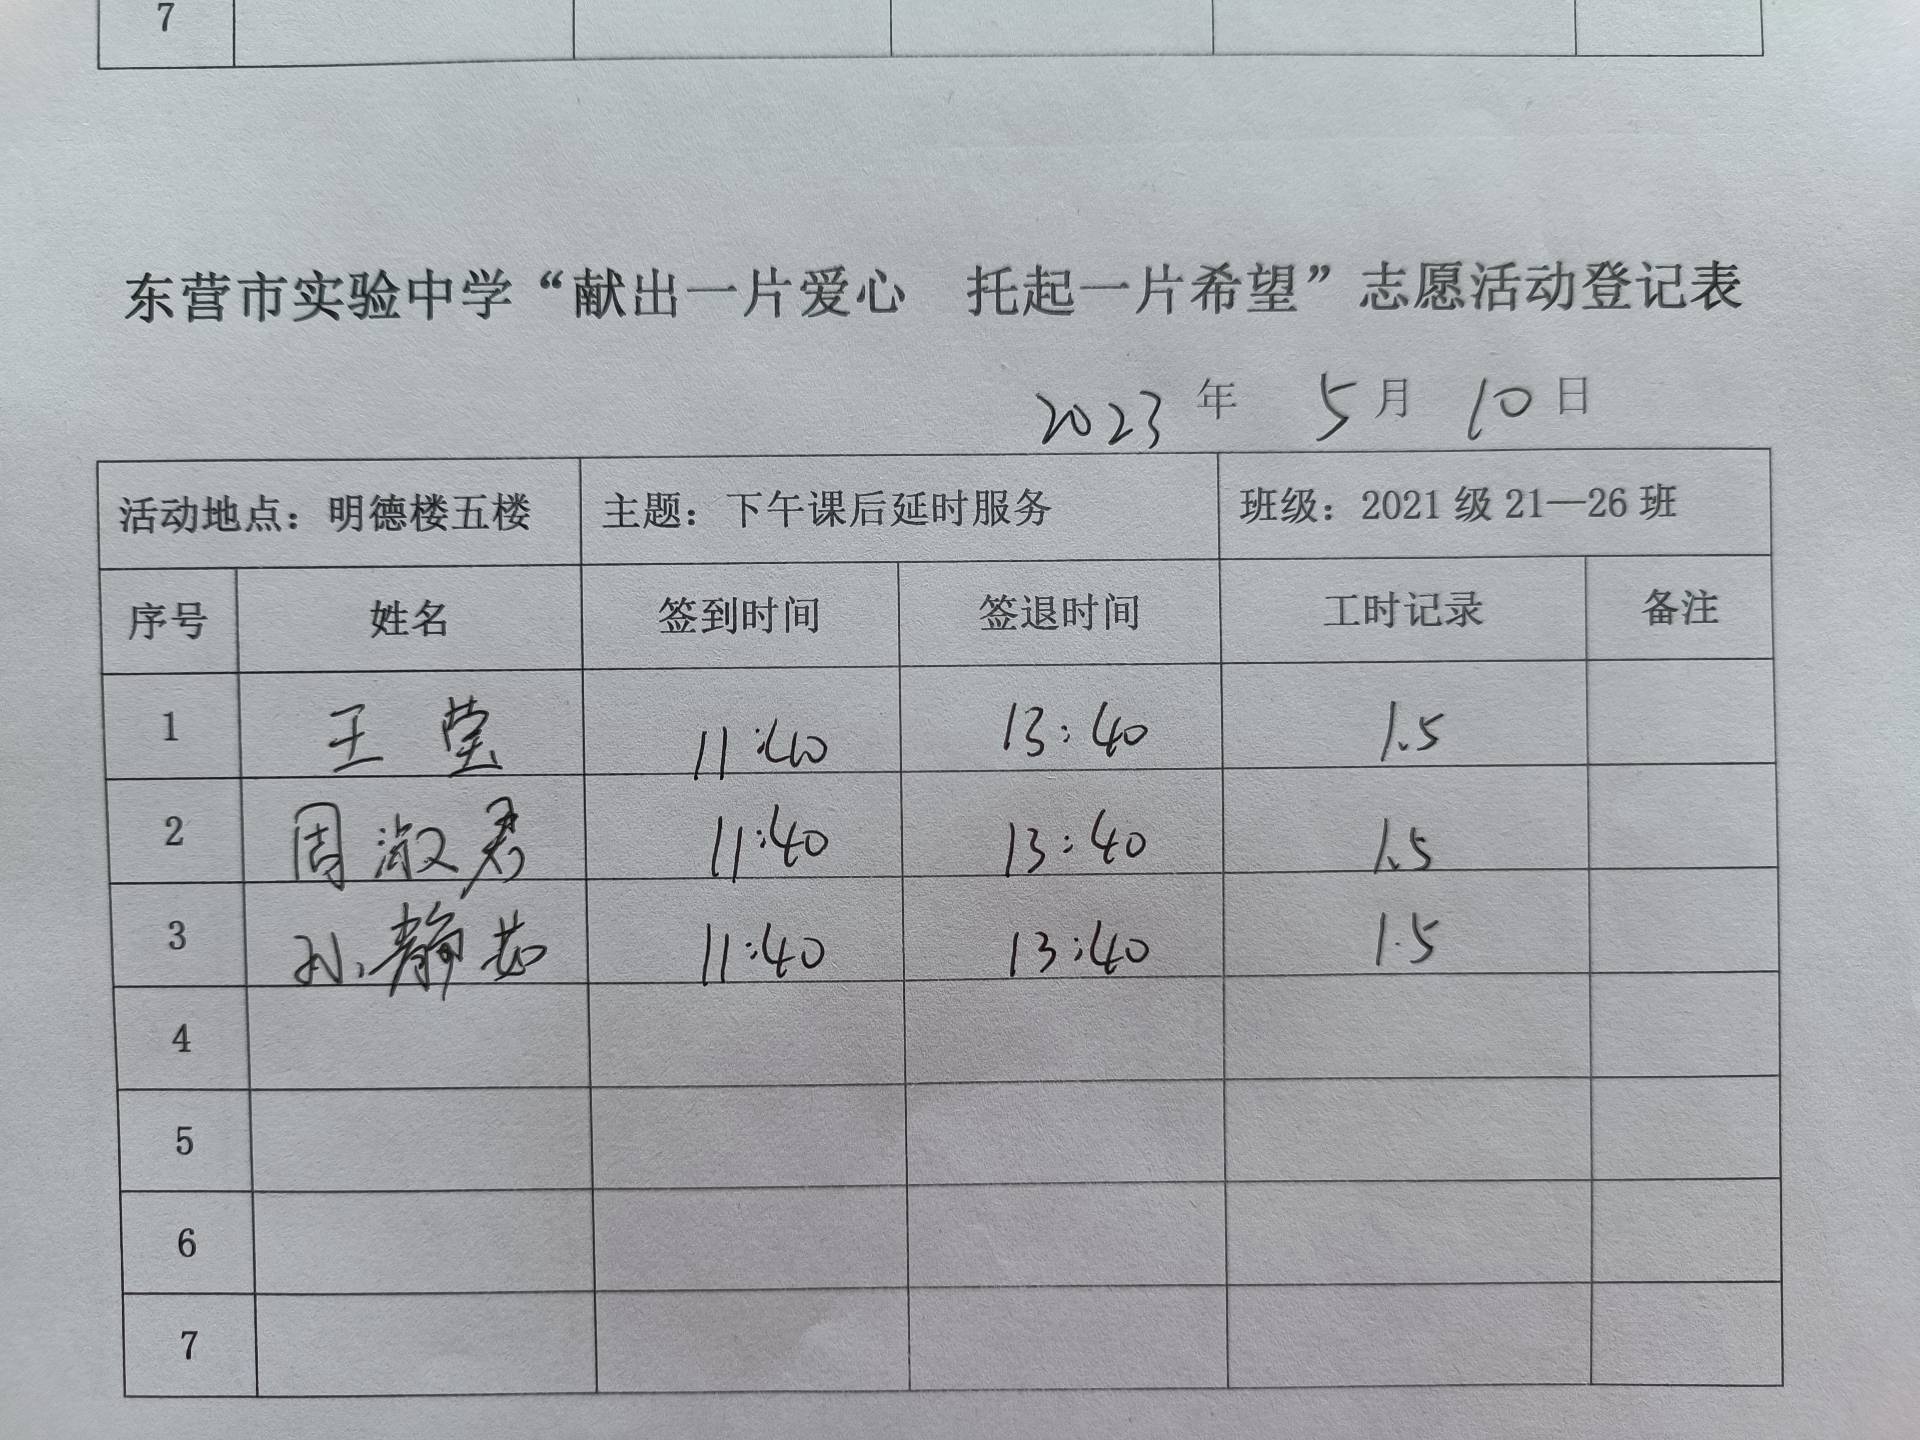 7
东营市实验中学“献出一片爱心 托起一片希望”志愿活动登记表
2023 年 5 月 10 日
活动地点：明德楼五楼 主题：下午课后延时服务 班级：2021 级 21—26 班
序号 姓名 签到时间 签退时间 工时记录 备注
1 王莹 11:40 13:40 1.5
2 周淑君 11:40 13:40 1.5
3 孙静 11:40 13:40 1.5
4
5
6
7